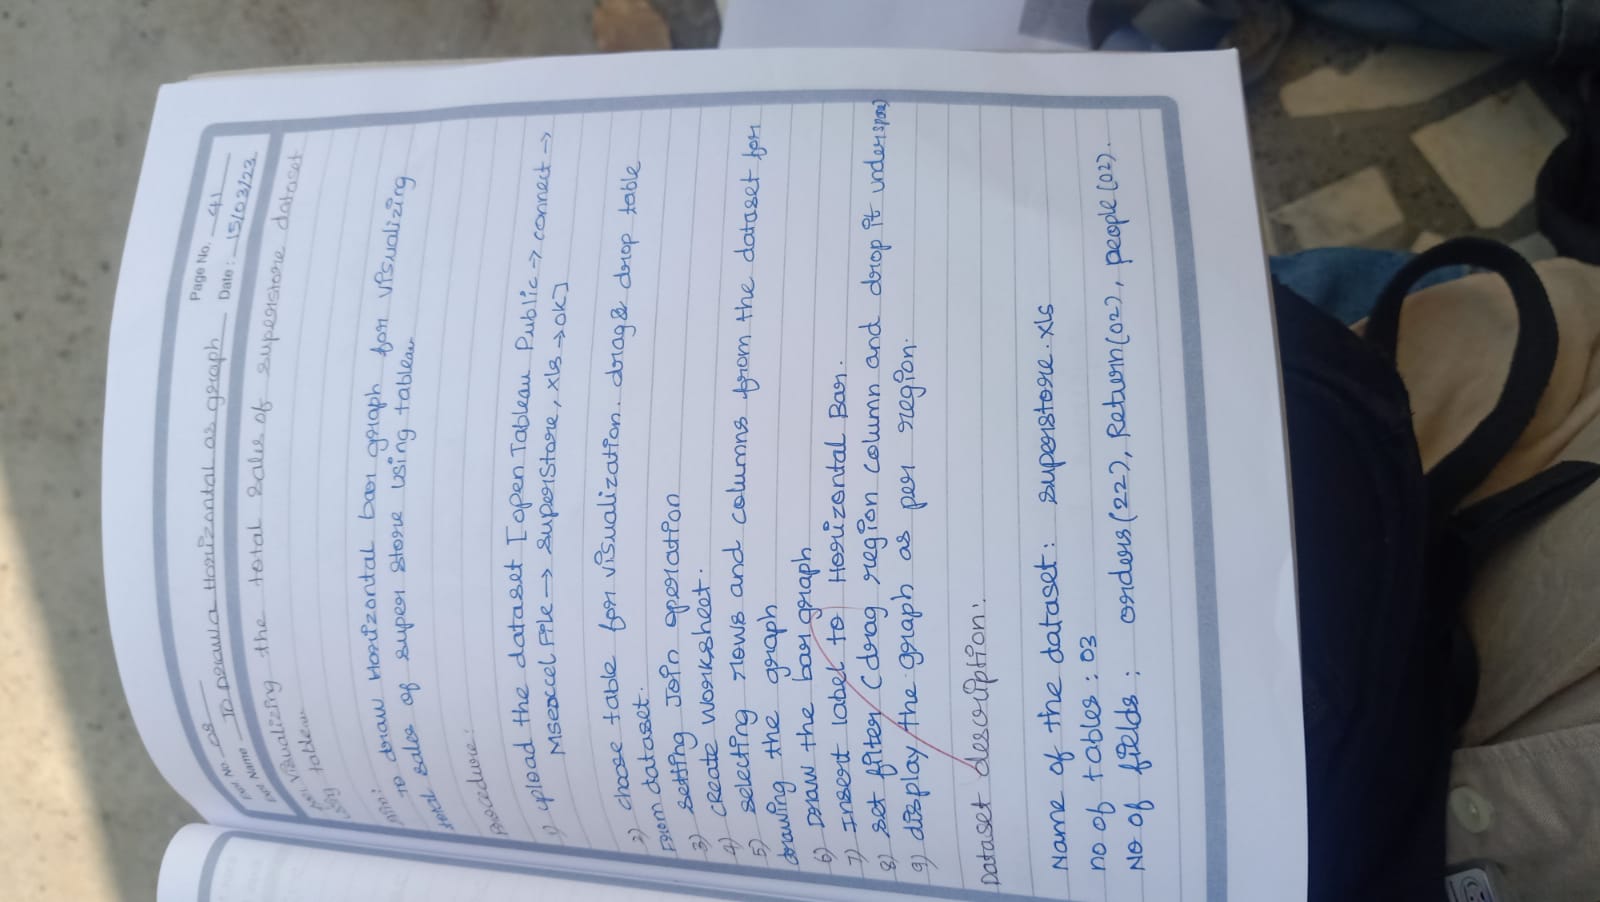 Page No. 41
Date: 15/03/23
Exp No - 08
Exp Name To Draw a Horizontal as graph
for visualizing the total sales of superstore dataset
using tableau
Aim:
To draw Horizontal bar graph for visualizing
total sales of super store using tableau
Procedure:
1) upload the dataset [open Tableau Public → connect →
MSexcel File → superstore, xls → OK]
2) choose table for visualization. drag & drop table
From dataset.
3) setting Join operation
4) create worksheet.
5) selecting rows and columns from the dataset for
drawing the graph
6) Draw the bar graph
7) Insert label to Horizontal Bar.
8) set filter (drag region column and drop it under
9) display the graph as per region.
Dataset description:
Name of the dataset: superstore.xls
no of tables: 03
No of fields: orders(22), Return(02), people(02).